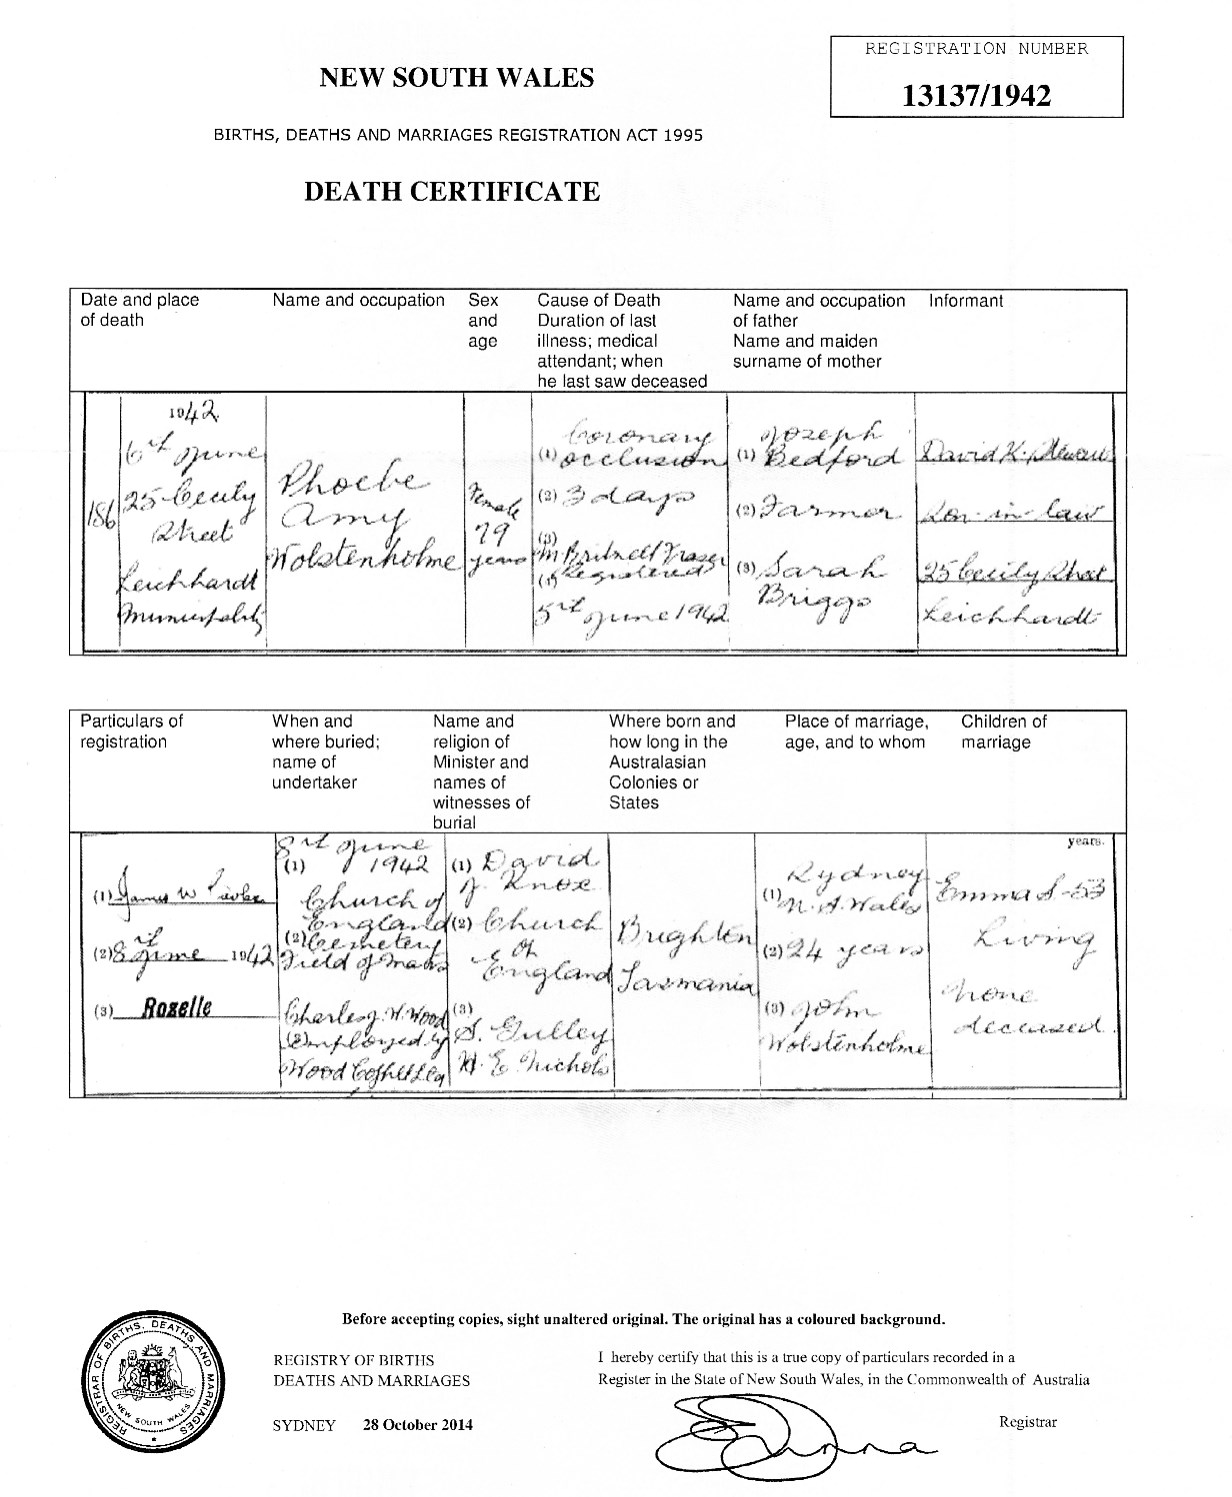 REGISTRATION NUMBER
13137/1942
NEW SOUTH WALES
BIRTHS, DEATHS AND MARRIAGES REGISTRATION ACT 1995
DEATH CERTIFICATE
Date and place
of death
Name and occupation
Sex
and
age
Cause of Death
Duration of last
illness; medical
attendant; when
he last saw deceased
Name and occupation
of father
Name and maiden
surname of mother
Informant
186
1942
6th June
25 Cecily
Street
Leichhardt
Municipality
Phoebe
Amy
Wolstenholme
Female
79
years
Coronary
(1) occlusion
(2) 3 days
(3)
M Britnell Fraser
(4) Registered
5th June 1942
Joseph
(1) Bedford
(2) Farmer
(3) Sarah
Briggs
David K.
Son-in-law
25 Cecily Street
Leichhardt
Particulars of
registration
When and
where buried;
name of
undertaker
Name and
religion of
Minister and
names of
witnesses of
burial
Where born and
how long in the
Australasian
Colonies or
States
Place of marriage,
age, and to whom
Children of
marriage
(1) James W
(2) 8th June 1942
(3) Rozelle
8th June
(1) 1942
Church of
England
(2) Cemetery
Field of Mars
Charles J. W. Wood
Employed by
Wood Coffill Ltd
(1) David
J. Knox
(2) Church
of
England
(3)
S. Gulley
H. E. Nichols
Brighton
Tasmania
Sydney
(1) N. S. Wales
(2) 24 years
(3) John
Wolstenholme
years.
Emma S - 53
Living
None
deceased
Before accepting copies, sight unaltered original. The original has a coloured background.
REGISTRAR OF BIRTHS, DEATHS AND MARRIAGES
NEW SOUTH WALES
REGISTRY OF BIRTHS
DEATHS AND MARRIAGES
SYDNEY 28 October 2014
I hereby certify that this is a true copy of particulars recorded in a
Register in the State of New South Wales, in the Commonwealth of Australia
Registrar